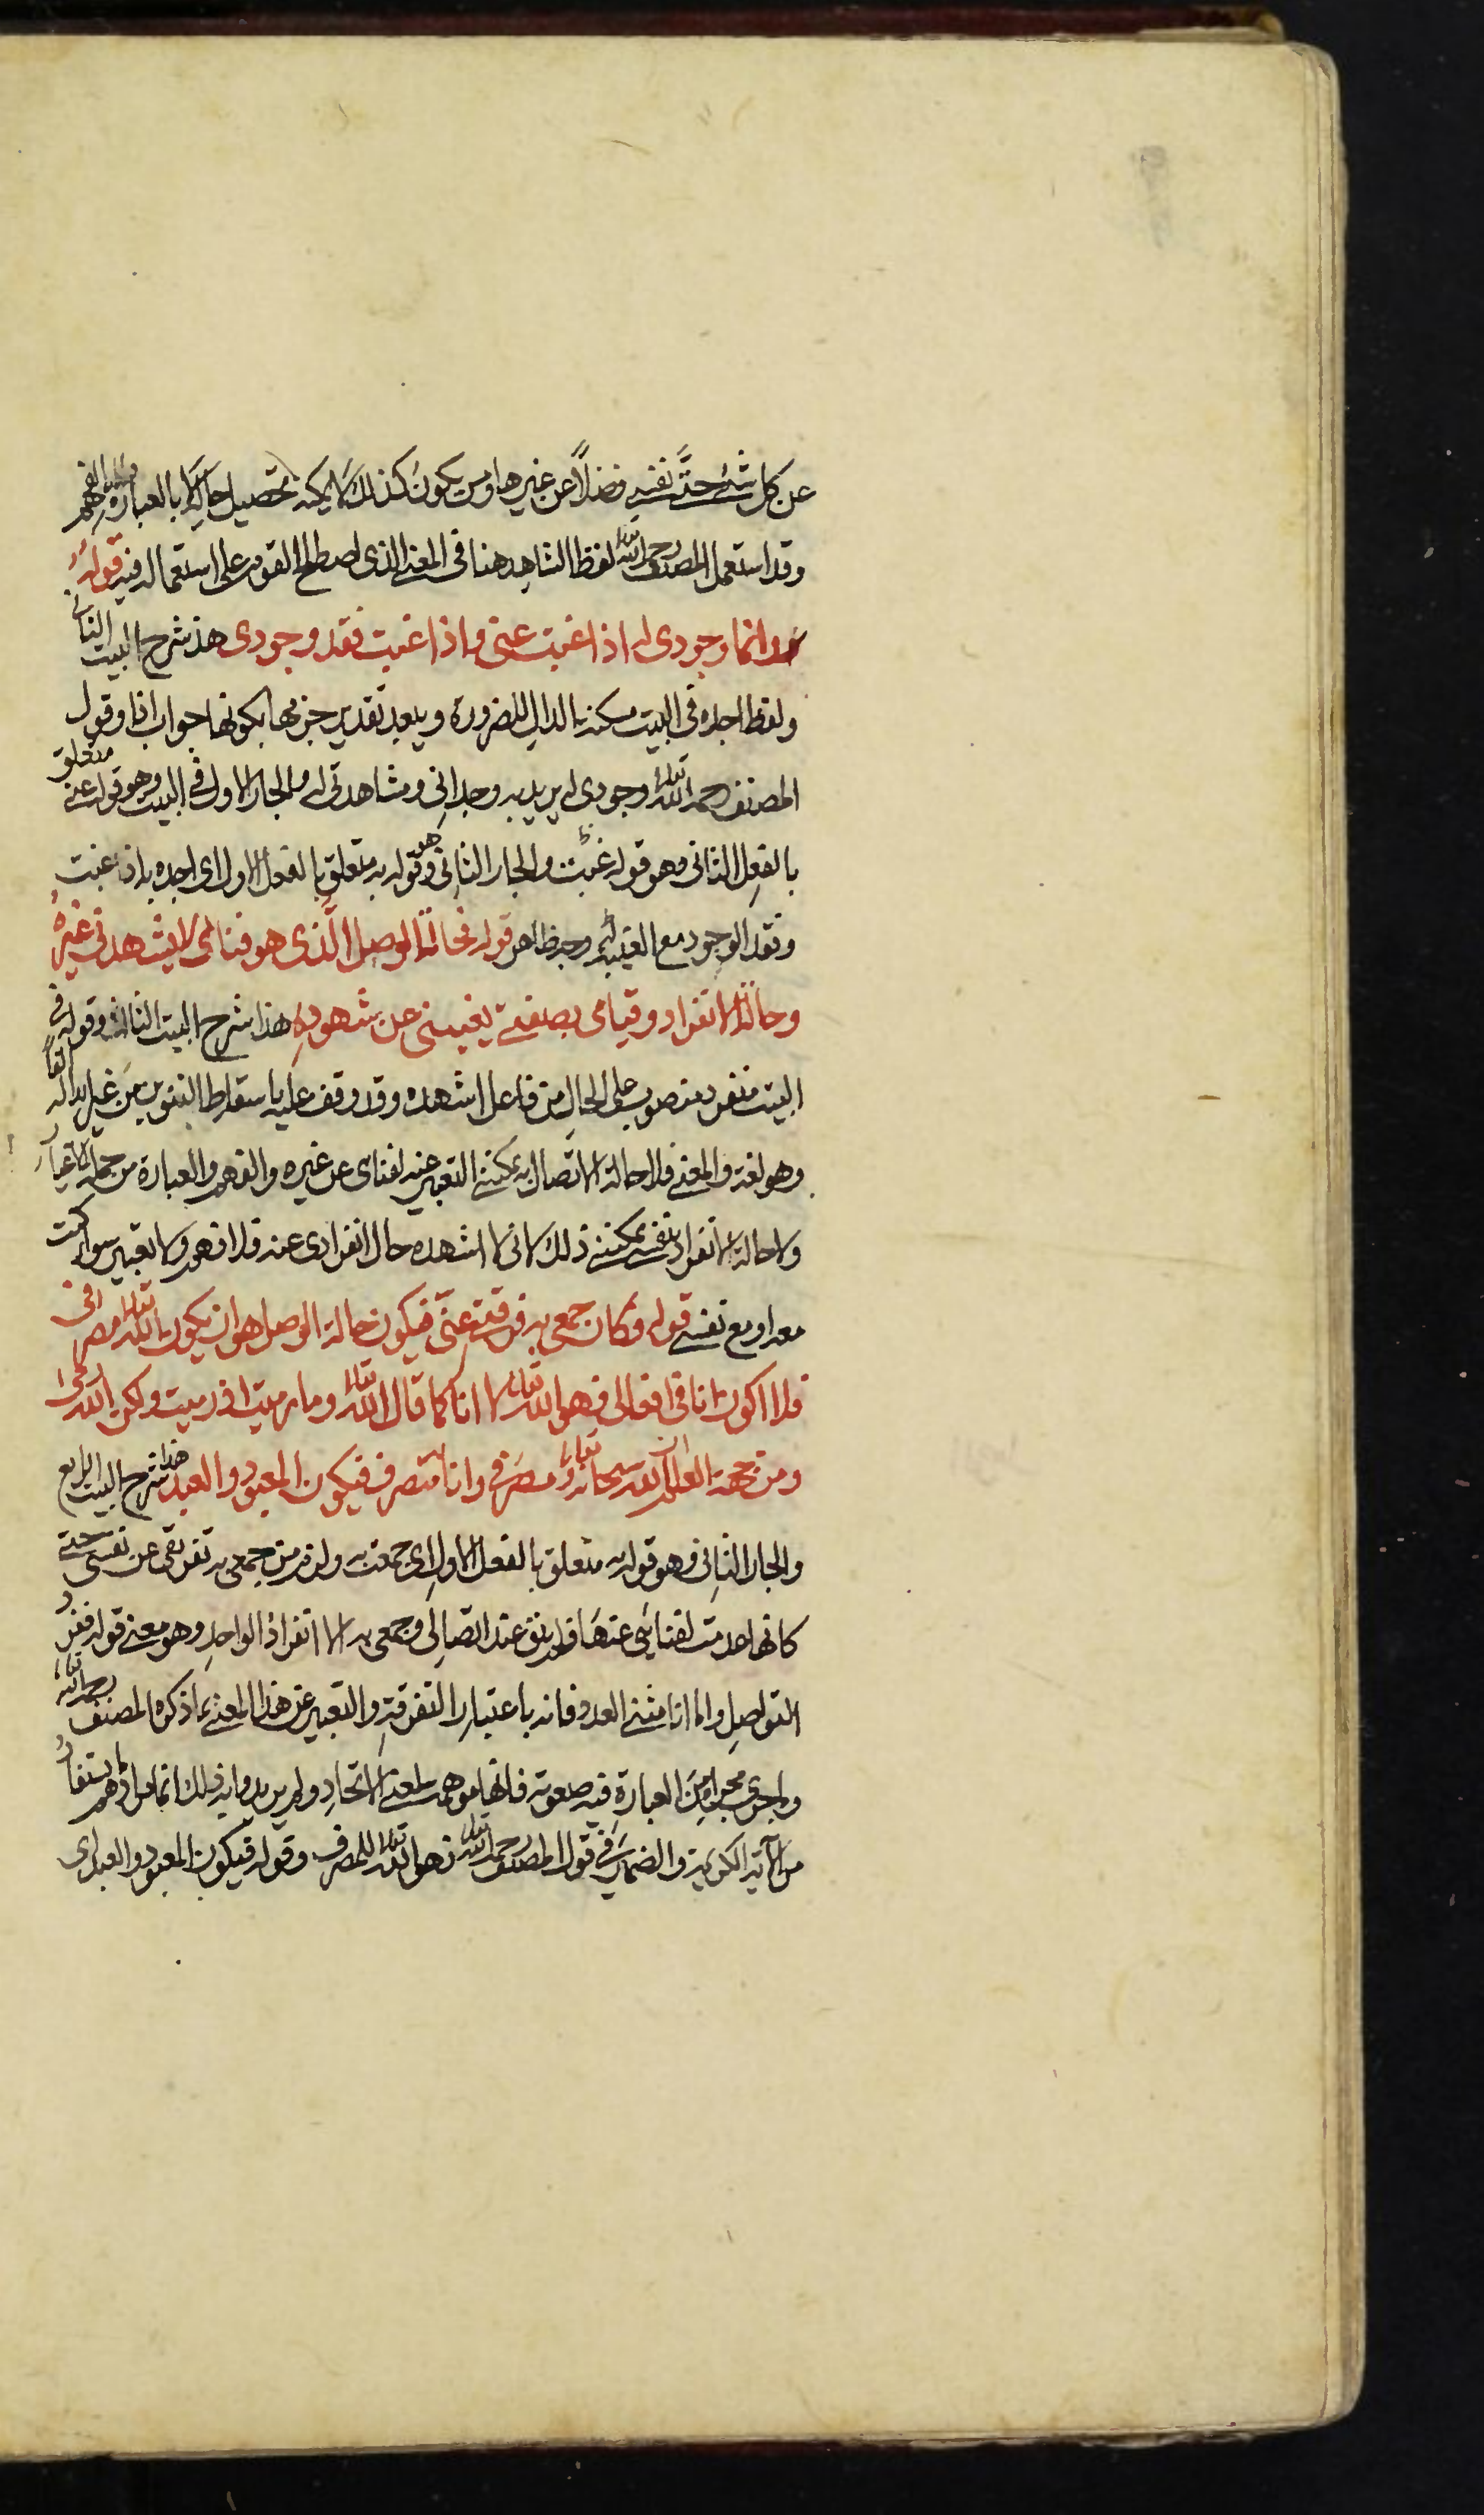 عن كل شئ حتى نفسه فضلاً عن غيرها ومن يكون كذلك لا يمكنه تحصيل حاله بالعبارة والفهم
وقد استعمل المصنف رحمه الله تعالى لفظ الشاهد هنا في المعنى الذى اصطلح القوم على استعماله فيه قوله
وانما وجودى له اذا غبت عنى واذا غبت فقد وجودى هذا شرح البيت الثاني
ولفظ اجده في البيت مسكنة الدال للضرورة ويبعد تقدير جزمها بكونها جواب اذا وقول
المصنف رحمه الله تعالى وجودى له يريد به وجدانى ومشاهدتى له والجار الاول في البيت وهو قوله عنى متعلق
بالفعل الثانى وهو قوله غبت والجار الثانى وهو قوله به متعلق بالفعل الاول اى اجده به اذا غبت
وفقد الوجود مع الغيبة وجه ظاهر قوله فحالة الوصل الذى هو فنائى لا يشهدنى غيره
وحالة الانفراد وقيامى بصفتى يغيبنى عن شهوده هذا شرح البيت الثالث وقوله في
البيت منفرد منصوب على الحال من فاعل اشهده وقد وقف عليه باسقاط التنوين من غير بدله الفا
وهو لغة والمعنى فلا حالة الاتصال به يمكننى التعبير عنه لفنائى عن غيره والفهم والعبارة من جملة الاغيار
ولا حالة الانفراد بنفسى يمكننى ذلك لانى لا اشهده حال انفرادى عنه فلا فهم ولا تعبير سواء كنت
معه او مع نفسى قوله فكان جمعى به فرقتى عنى فيكون حالة الوصل هو ان يكون الله تعالى مصرفى
فلا اكون انا في افعالى فهو الله تعالى لا انا كما قال الله تعالى وما رميت اذ رميت ولكن الله رمى
ومن جهة العلم ان الله سبحانه وتعالى مصرفى وانا متصرف فيكون المعبود والعبد هذا شرح البيت الرابع
والجار الثانى وهو قوله به متعلق بالفعل الاول اى جمعت به ولزم من جمعى به تفرقى عن نفسى حتى
كانها عدمت لفنائى عنها فلم يبق عند اتصالى وجمعى به الا انفراد الواحد وهو معنى قوله ففرد
التواصل واما انا مثنى العدد فانه باعتبار التفرقة والتعبير عن هذا المعنى بما ذكره المصنف رحمه الله تعالى
وما جرى مجراه من العبارة فيه صعوبة فانها موهمة لمعنى الاتحاد ولم يريدوا به ذلك انما مرادهم ما يستفاد
من الآية الكريمة والضمائر في قول المصنف رحمه الله تعالى فهو الله تعالى للمصرف وقوله فيكون المعبود والعبد اى